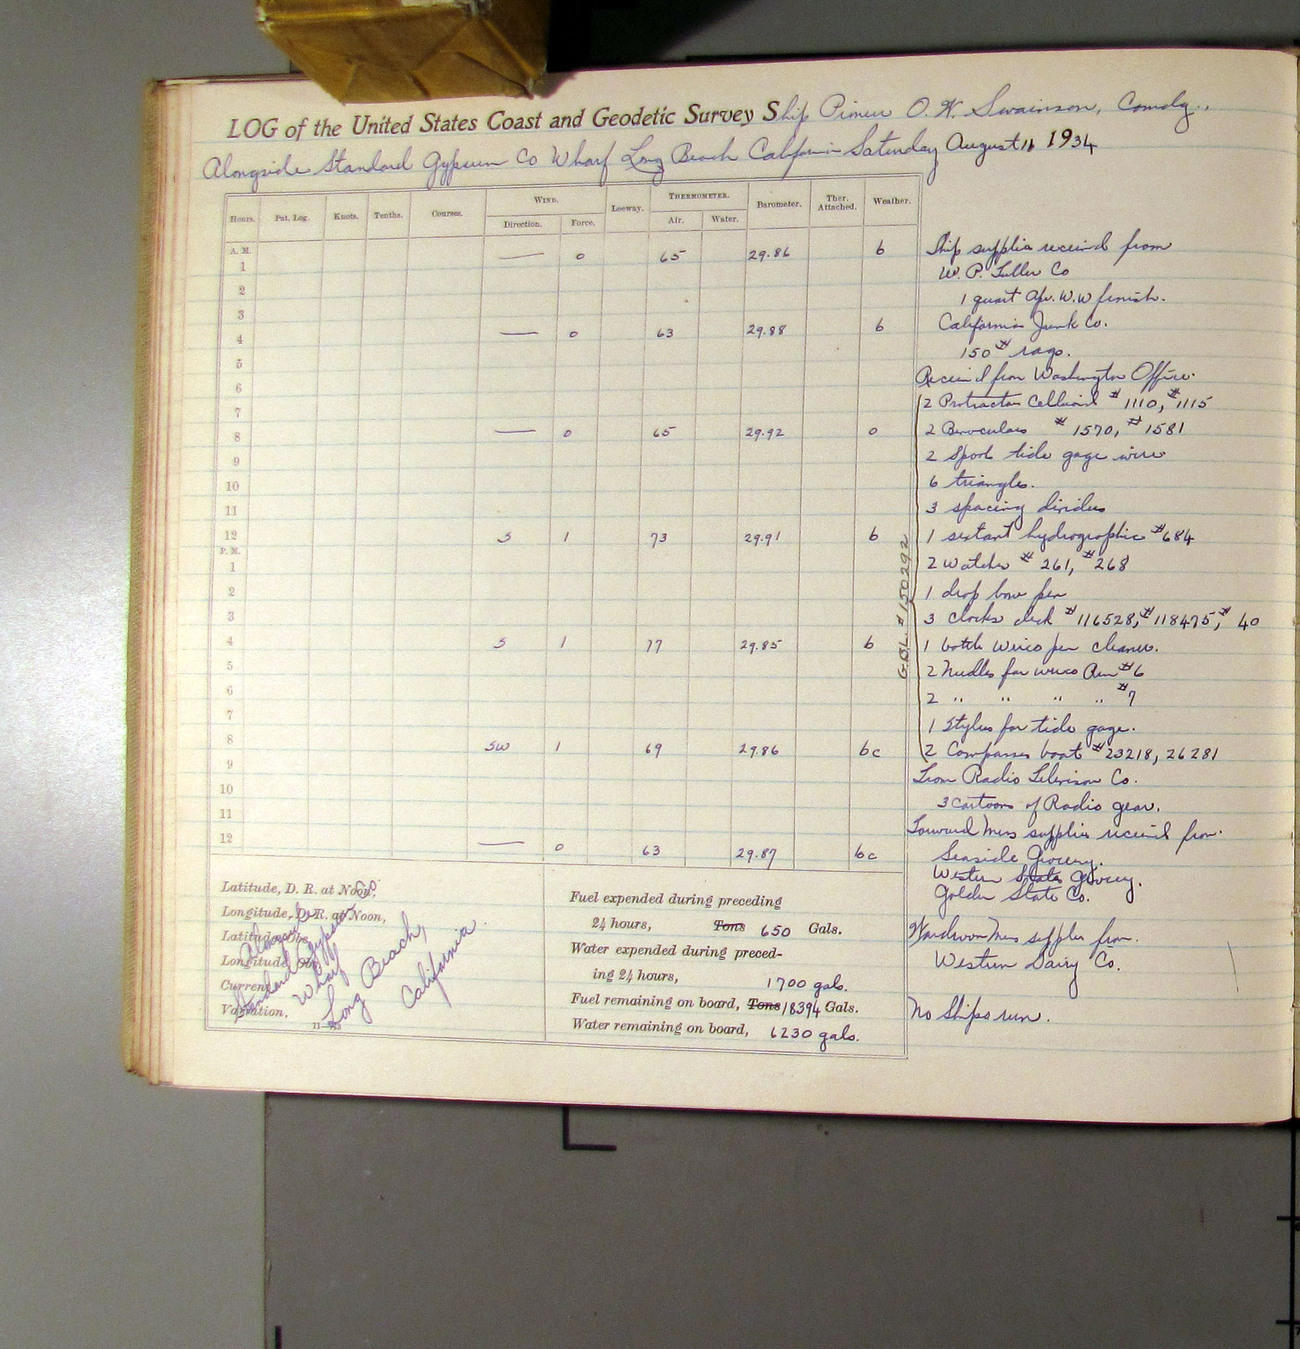 LOG of the United States Coast and Geodetic Survey Ship Pioneer O. W. Swainson, Comdg.,
Alongside Standard Gypsum Co Wharf Long Beach California Saturday August 11 1934
Hours. Pat. Log. Knots. Tenths. Courses. WIND. Direction. Force. Leeway. THERMOMETER. Air. Water. Barometer. Ther. Attached. Weather.
A. M.
1 — 0 65 29.86 b
2
3
4 — 0 63 29.88 b
5
6
7
8 — 0 65 29.92 o
9
10
11
12 S 1 73 29.91 b
P. M.
1
2
3
4 S 1 77 29.85 b
5
6
7
8 SW 1 69 29.86 bc
9
10
11
12 — 0 63 29.87 bc
Ship supplies received from
W. P. Fuller Co
1 quart W.W finish.
California Junk Co.
150 # rags.
Received from Washington Office.
2 Protractor Celluoid # 1110, # 1115
2 Binoculars # 1570, # 1581
2 Spools tide gage wire
6 triangles.
3 spacing dividers
1 sextant hydrographic # 684
2 Watches # 261, # 268
1 drop bow pen
3 clocks deck # 116528, # 118475, # 40
1 bottle Wrico pen cleaner.
2 Needles for wrico Pen # 6
2 " " " " # 7
1 Stylus for tide gage.
2 Compasses boat # 23218, 26281
G.B.L. # 150292
From Radio Television Co.
3 cartoons of Radio gear.
Forward Mess supplies received from.
Seaside Grocery.
Western States Grocery.
Golden State Co.
Wardroom Mess supplies from.
Western Dairy Co.
No Ships run.
Latitude, D. R. at Noon,
Longitude, D. R. at Noon,
Latitude Obs.
Longitude Obs.
Current,
Variation,
11—
Alongside
Standard Gypsum Co
Wharf
Long Beach,
California.
Fuel expended during preceding
24 hours, Tons 650 Gals.
Water expended during preced-
ing 24 hours, 1700 gals.
Fuel remaining on board, Tons 18394 Gals.
Water remaining on board, 6230 gals.